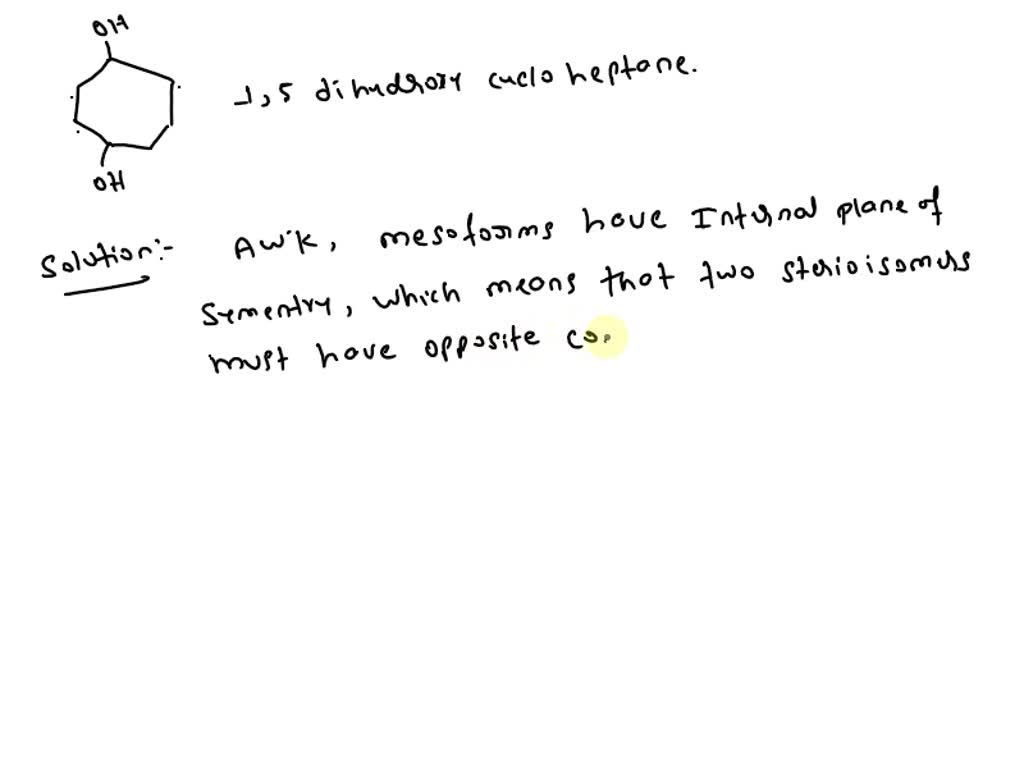 OH
1,5 dihydroxy cyclo heptane.
OH
Solution:- AW'K, mesoforms have Internal plane of
Symentry, which means that two sterioisomers
must have opposite co.